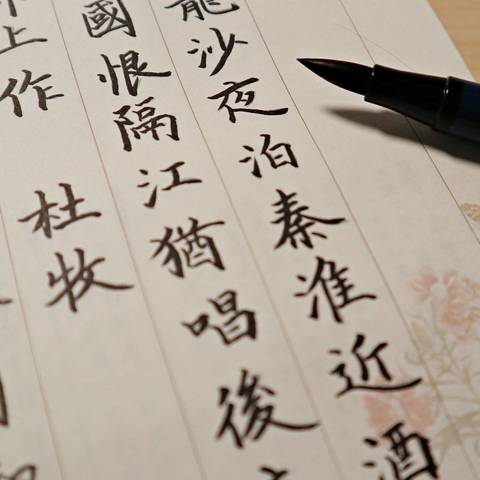 籠沙夜泊秦淮近酒
國恨隔江猶唱後
上作 杜牧